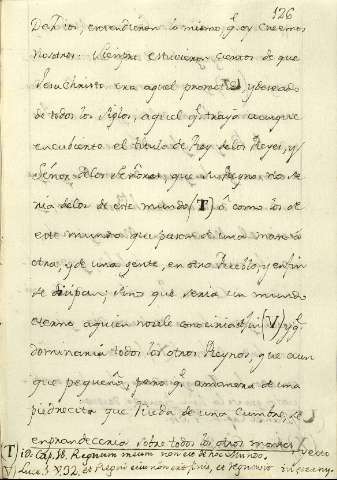 126
De Dios, entendieron lo mismo, q.e oy creemos
nosotros: siempre estuvieron ciertos de que
Jesu Christo era aquel prometido, y deseado
de todos los siglos, aquel q.e trajo aunque
en cubierto el titulo de Rey de los Reyes, y
Señor de los Señores, que su Reyno no se
ria de los de este mundo (T) ô como los de
este mundo que pasan de una mano à
otra, y de una gente, en otro Pueblo, y en fin
se disipan; sino que seria un mundo
eterno, aquien no se le conociria fin (V) y q.e
dominaria todos los otros Reynos, que aun
que pequeño, pero q.e a manera de una
piedrecita que rueda de una cumbre, se
engrandeceria sobre todos los otros montes,
(T) io. Cap. 18. Regnum meum non est de hoc Mundo.
(V) Luc. 1. V. 32. et Regni eius non erit finis, et regnavit in